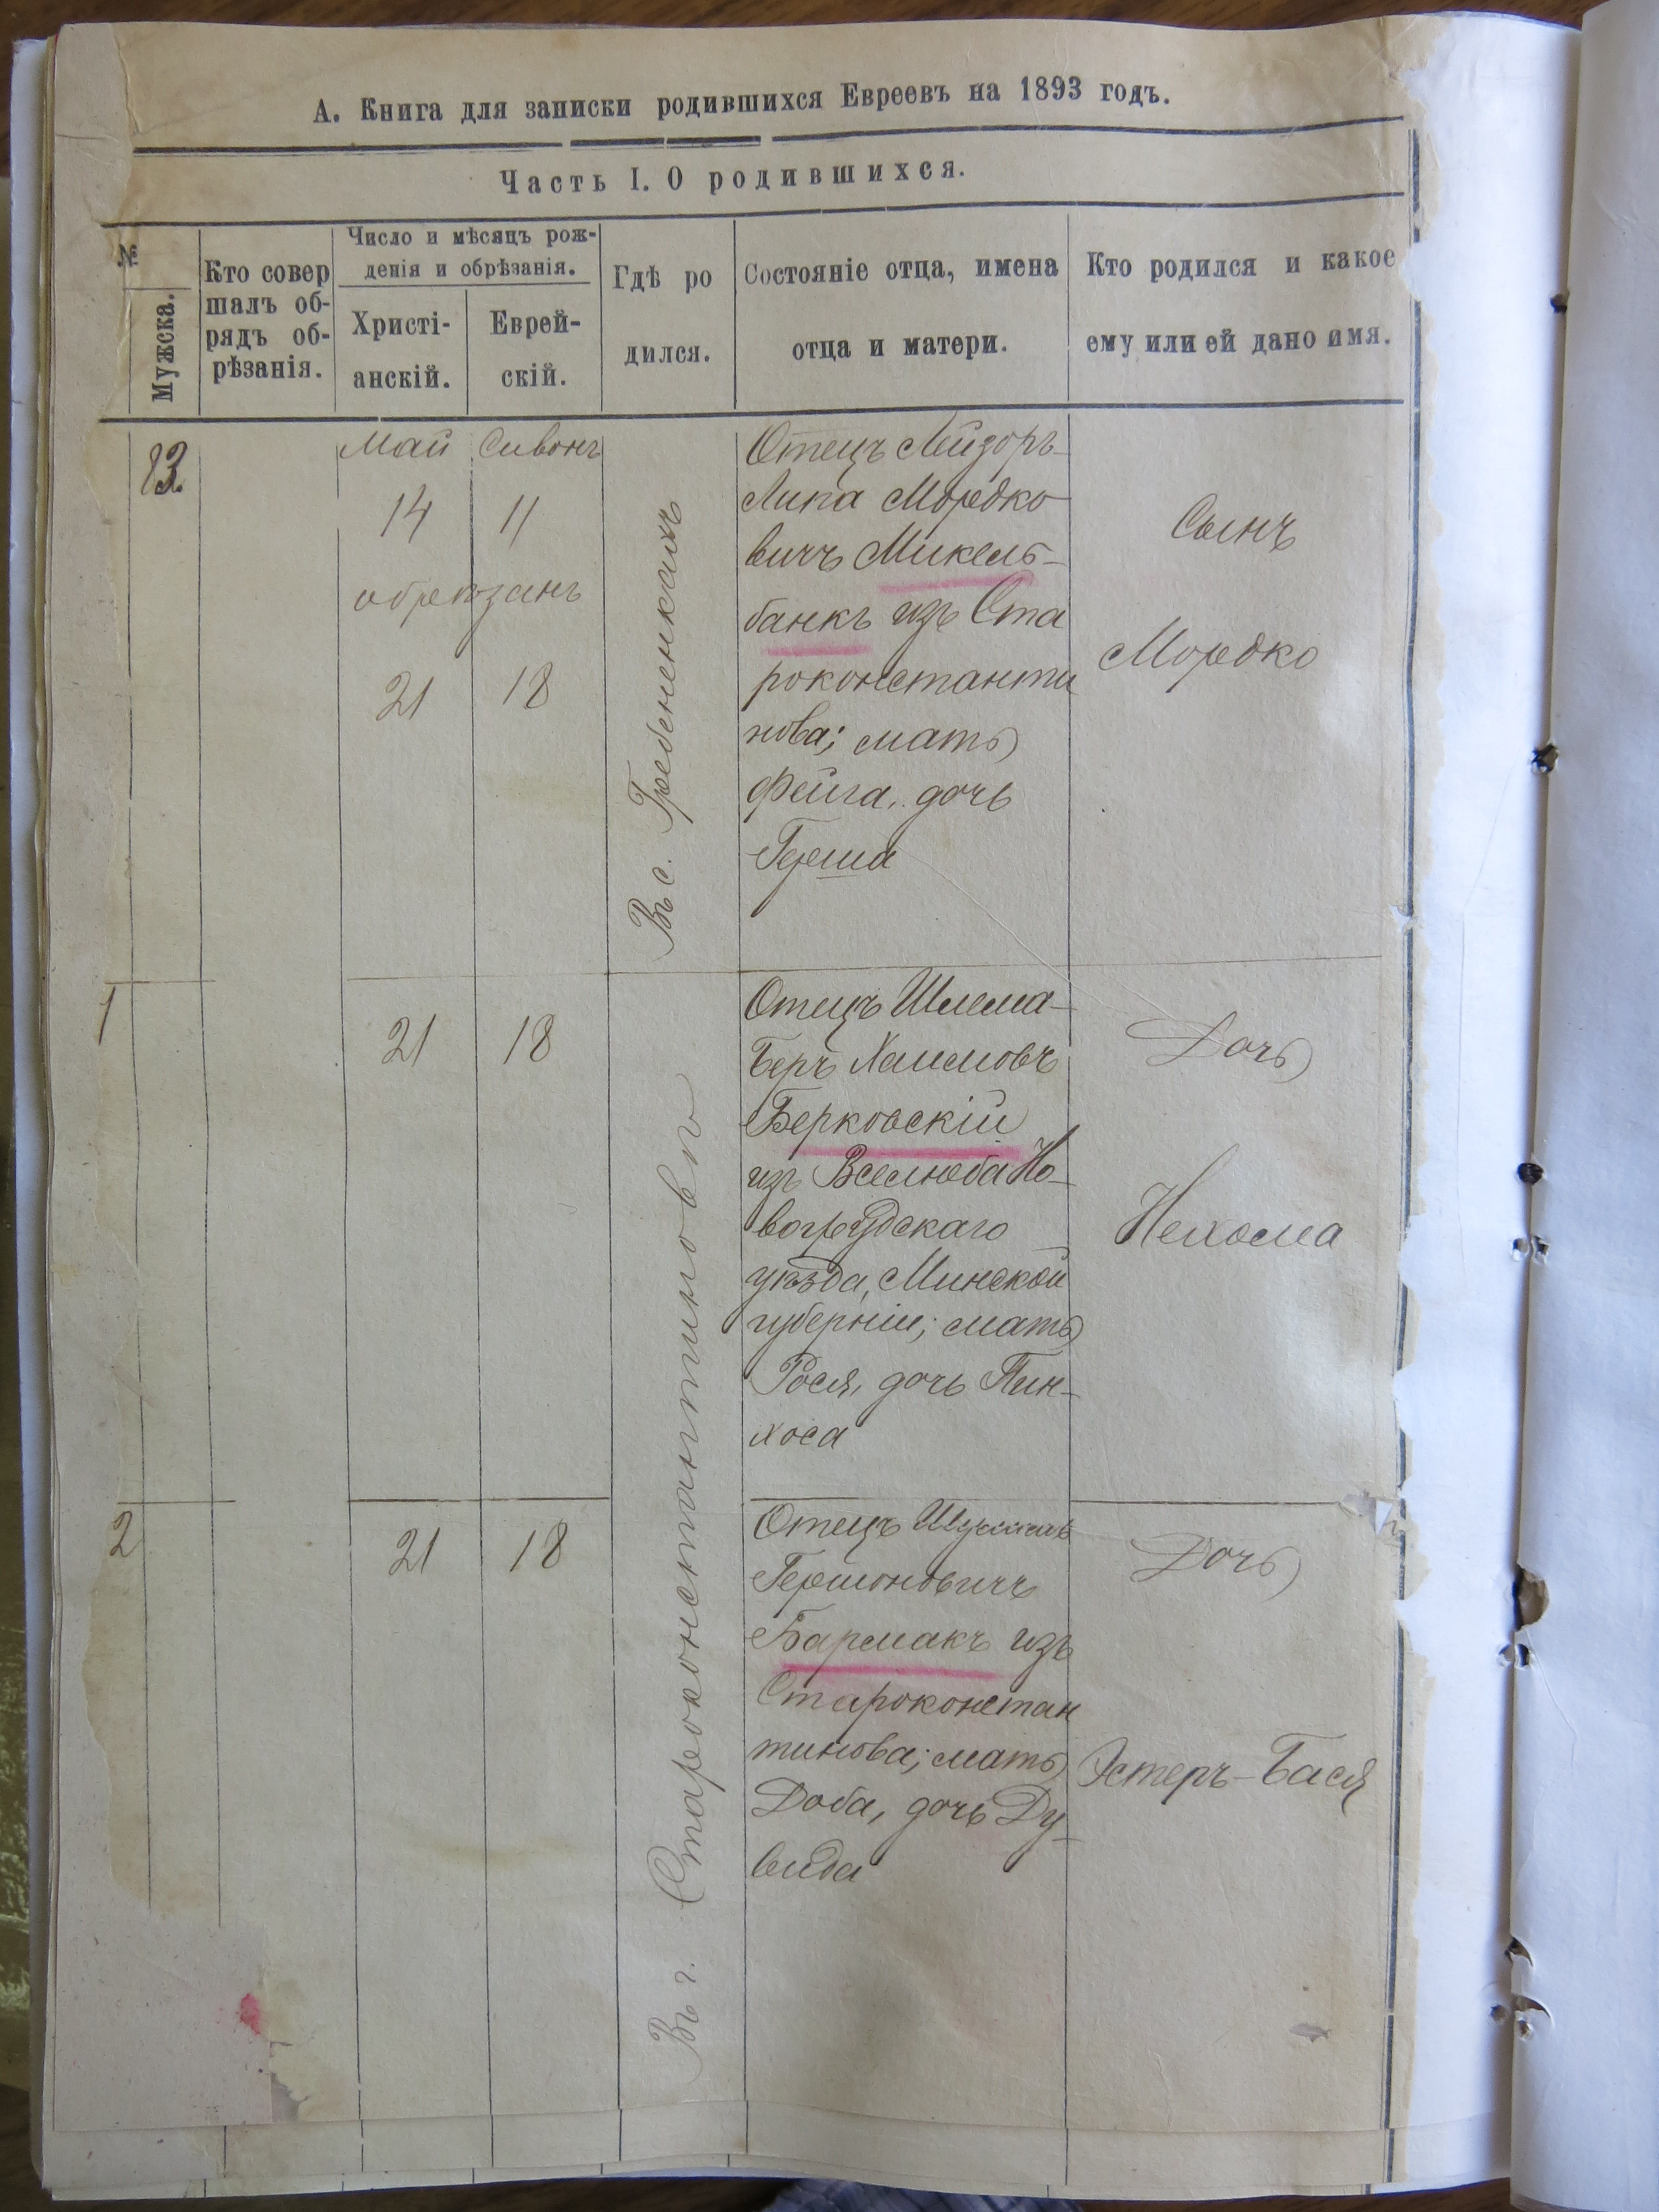 А. Книга для записки родившихся Евреевъ на 1893 годъ.
Часть I. О родившихся.
№
Мужска.
Кто совер
шалъ об-
рядъ об-
рѣзанія.
Число и мѣсяцъ рож-
денія и обрѣзанія.
Христі-
анскій.
Еврей-
скій.
Гдѣ ро
дился.
Состояніе отца, имена
отца и матери.
Кто родился и какое
ему или ей дано имя.
Май Сивонъ
14 11
обрезанъ
21 18
Въ с. Гребененкахъ
Отецъ Лейзоръ-
Липа Мордко-
вичъ Микель-
банкъ изъ Ста
роконстанти
нова; мать
Фейга, дочь
Герша
Сынъ
Мордко
1
21 18
Въ г. Староконстантиновѣ
Отецъ Шлема-
Беръ Хаимовъ
Берковскій
изъ Вселюба Но-
вогрудскаго
уѣзда, Минской
губерніи; мать
Рося, дочь Пин-
хоса
Дочь
Нехома
2
21 18
Отецъ
Гершоновичъ
Бармакъ изъ
Староконстан
тинова; мать
Доба, дочь Ду-
вида
Дочь
Эстеръ-Бася